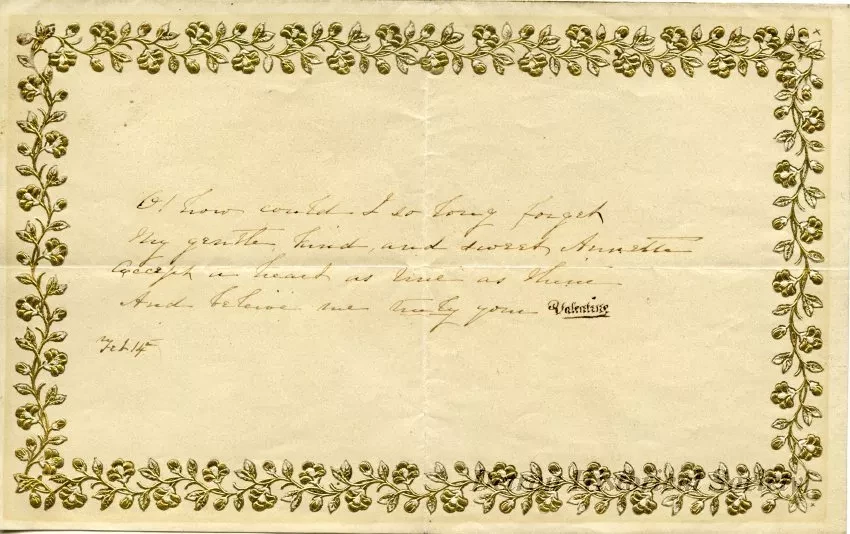 O! how could I so long forget
My gentle, kind, and sweet Annette
Accept a heart as true as thine
And beleive me truly your Valentine
Feb 14
Historical Society